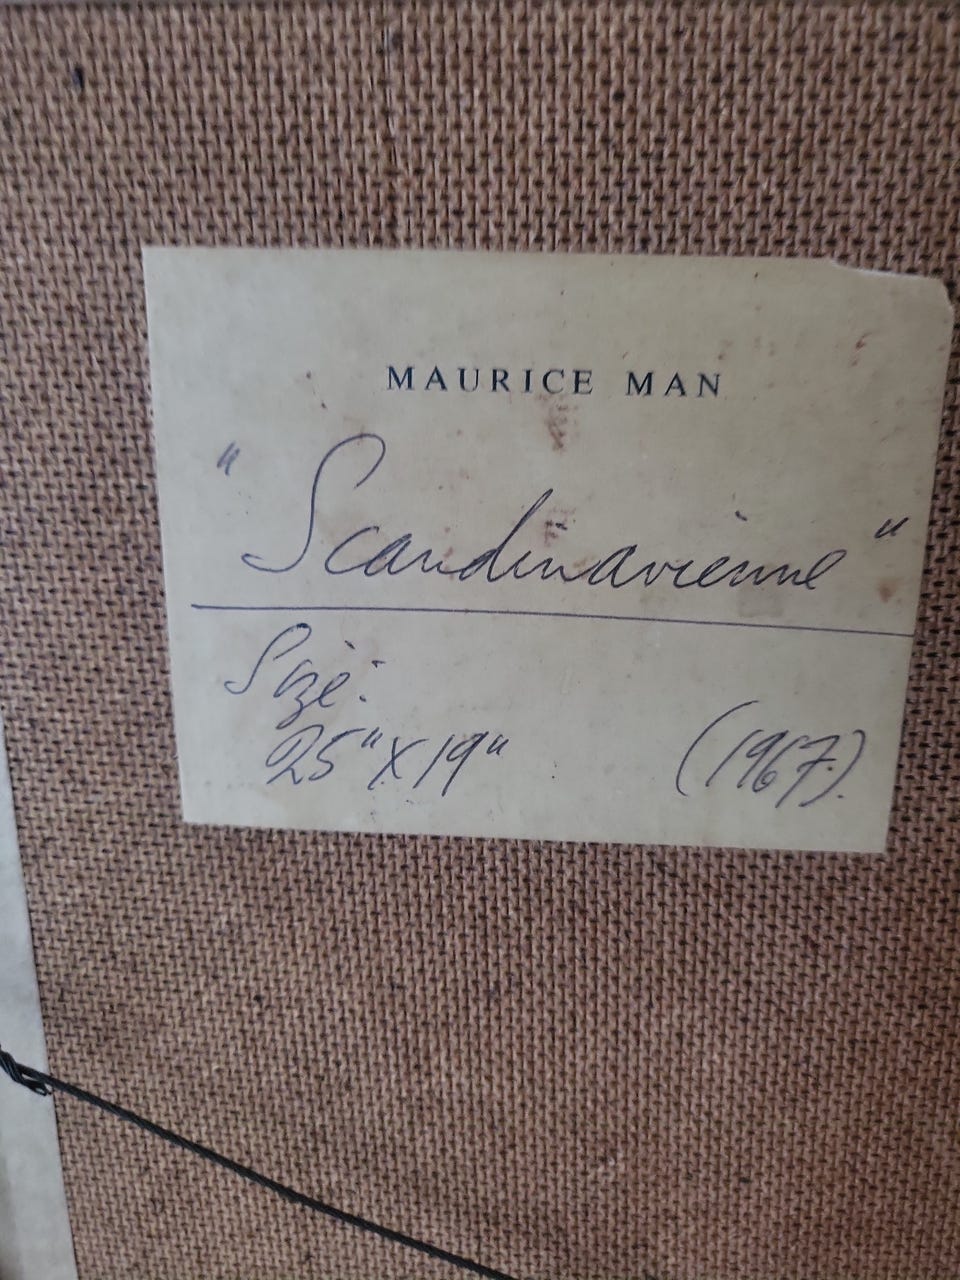 MAURICE MAN
"Scandinavienne"
Size:
25" X 19" (1967).